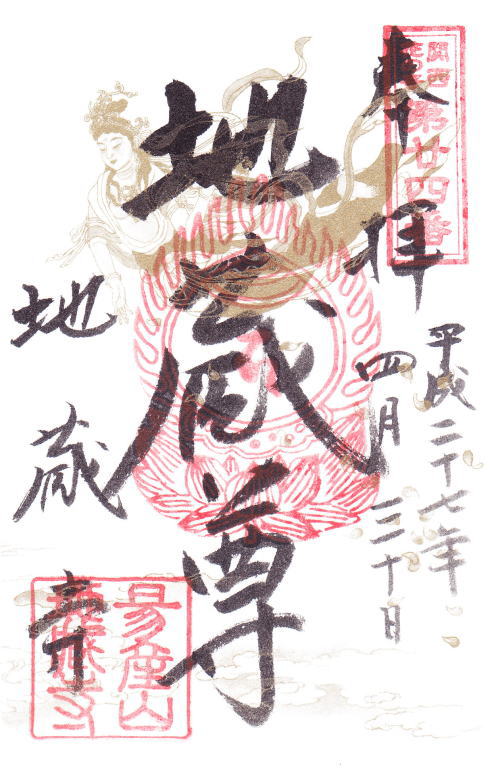 関西
第廿四番
奉拝
平成二十七年
四月三十日
地蔵尊
地蔵寺
易産山